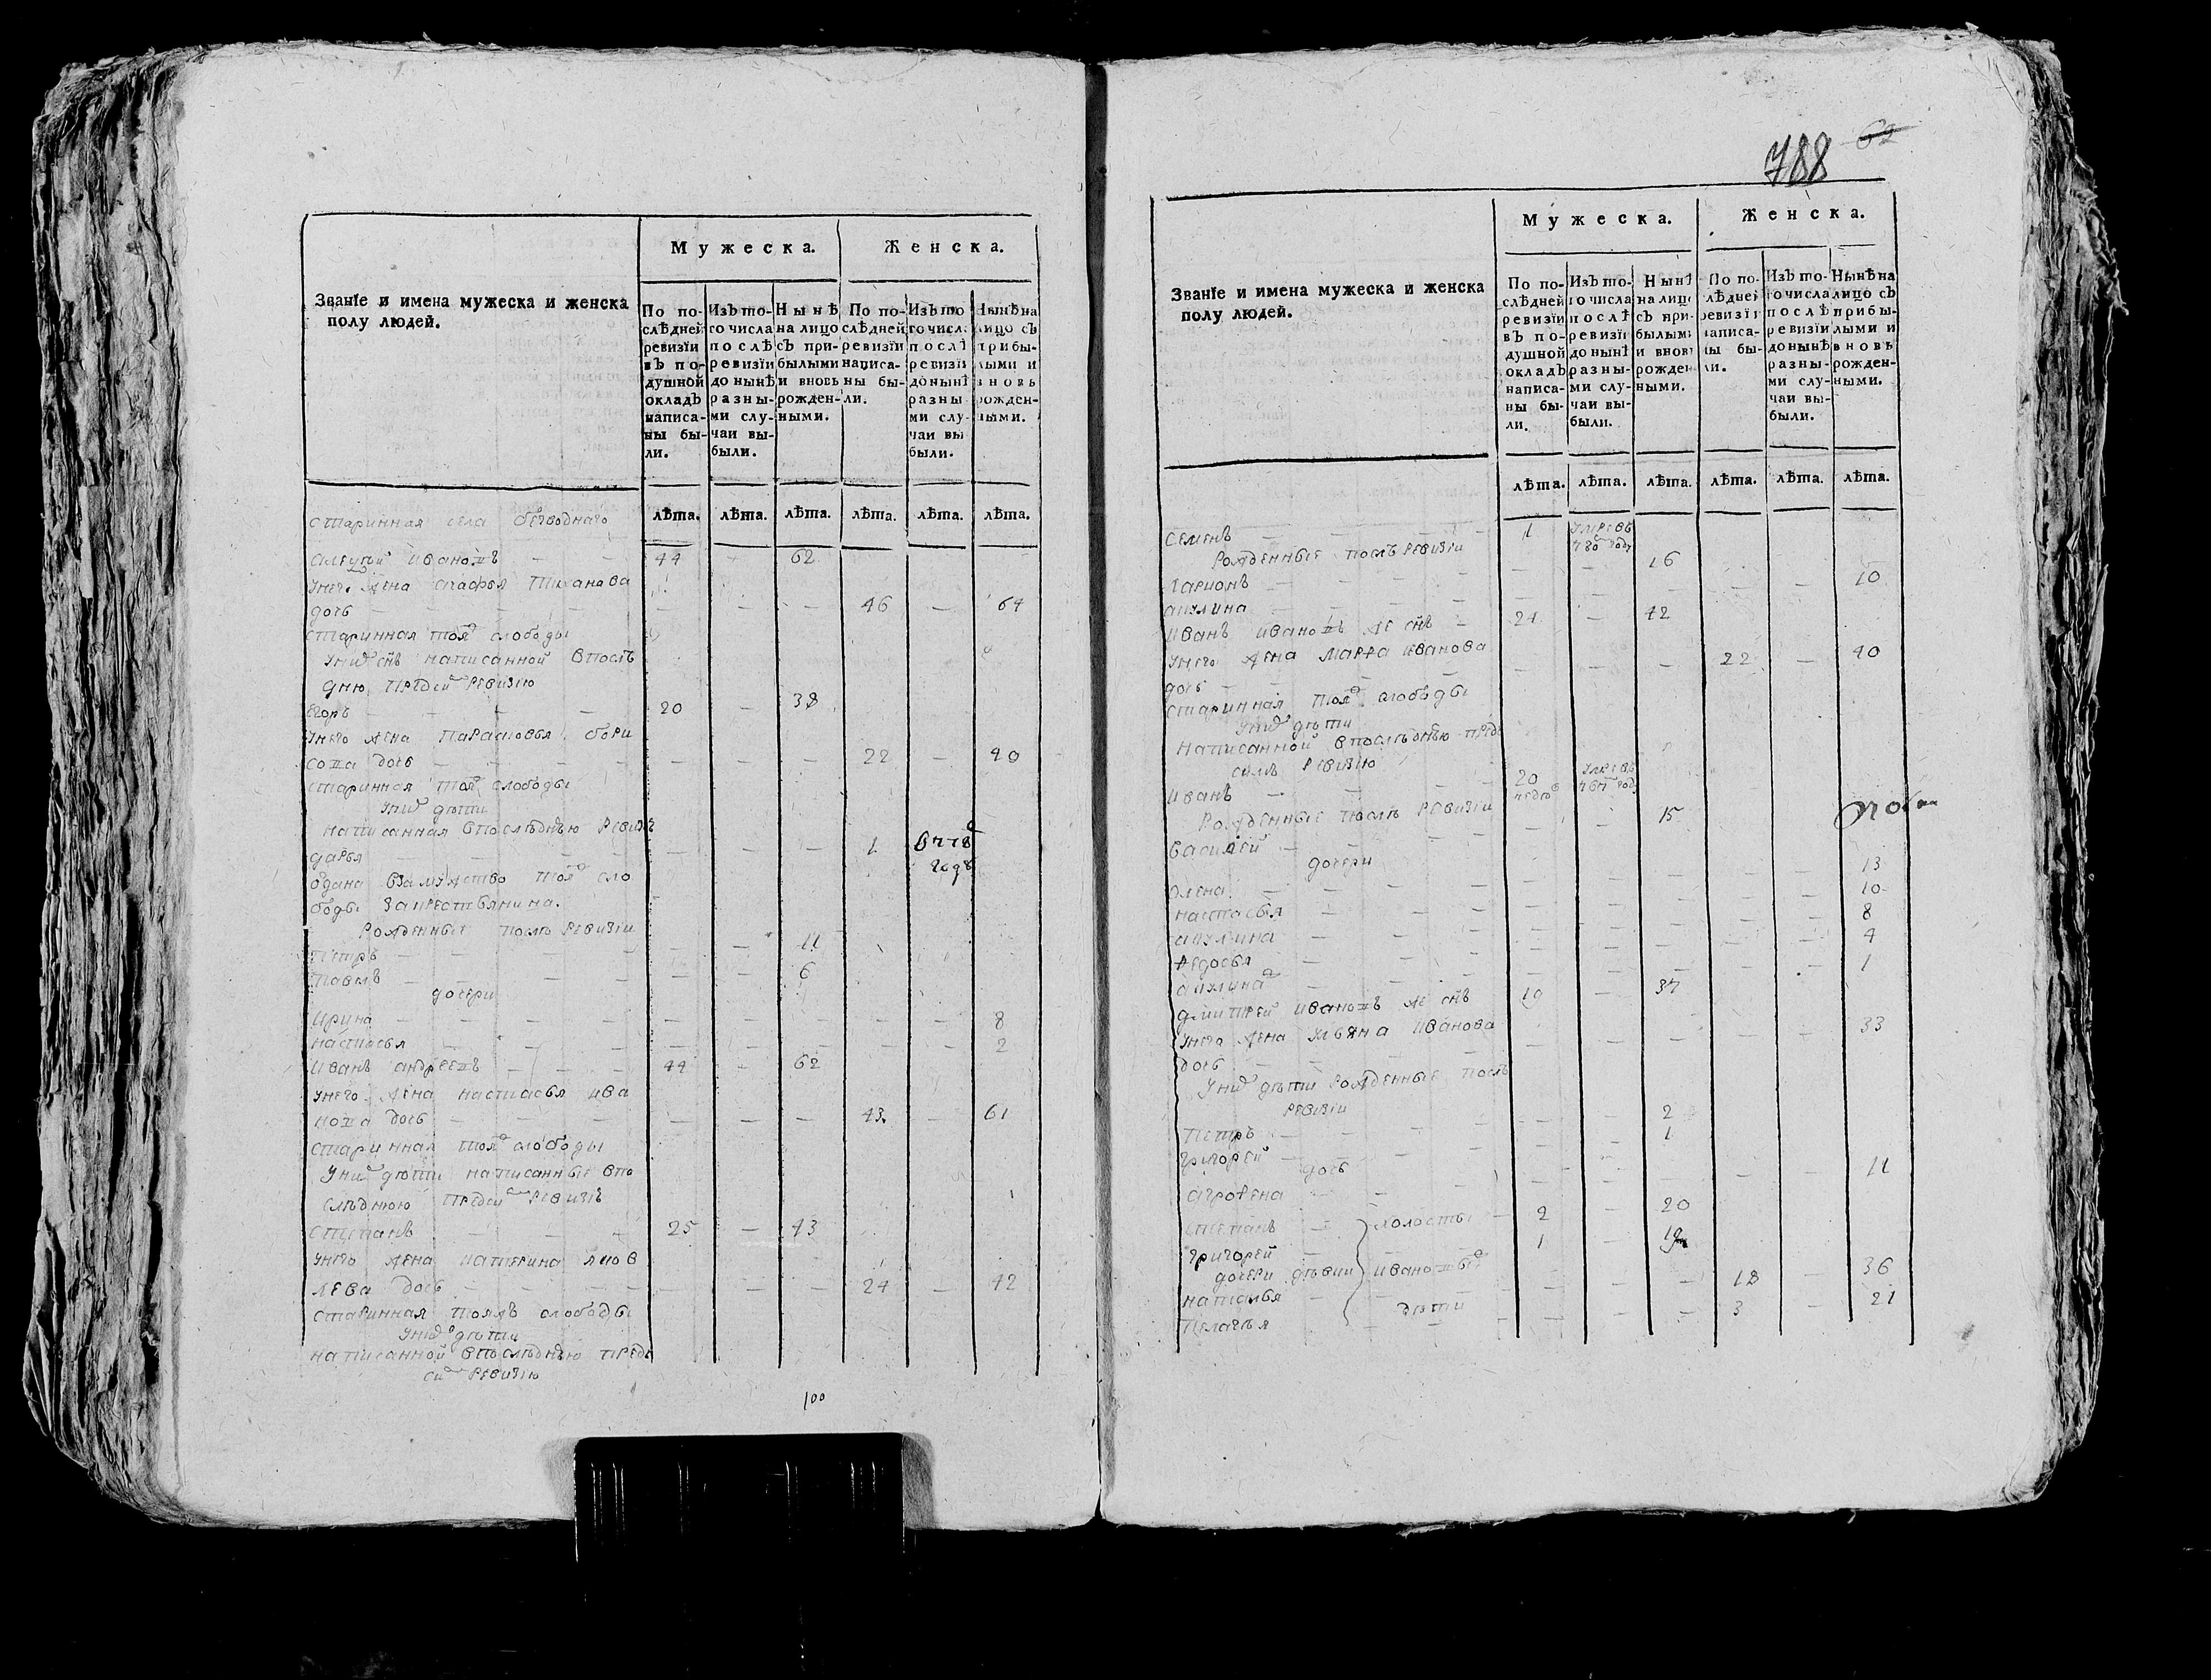 Званїе и имена мужеска и женска
полу людей.
Мужеска.
Женска.
По по-
слѣдней
ревизїи
въ по-
душной
окладъ
написа-
ны бы-
ли.
Изъ то-
го числа
послѣ
ревизїи
до нынѣ
разны-
ми слу-
чаи вы-
были.
Нынѣ
на лицо
съ при-
былыми
и вновь
рожден-
ными.
По по-
слѣдней
ревизїи
написа-
ны бы-
ли.
Изъ то
го числ.
послѣ
ревизїи
до нынѣ
разны
ми слу-
чаи вы
были.
Нынѣ на
лицо съ
прибы-
лыми и
вновь
рожден-
ными.
лѣта. лѣта. лѣта. лѣта. лѣта. лѣта.
старинная села
Ивановъ — — 44 — 62
Унего жена Тиханова
дочь — — — — — — 46 — 64
старинная тоя слободы
Униx снъ написанной впослѣ
днюю предсию ревизiю
Егоръ — — — — 20 — 38
Унего жена парасковья бори
сова дочь — — — — — — 22 — 40
старинная тоя слободы
Униx дѣти
написанная впослѣднѣю ревизi
дарья — — — — — — 1 в 778
годѣ
одана взамужство тоя сло
боды закрестьянина.
Рожденные послѣ ревизiи
Петръ — — — — — 11
Павелъ — — — — — 6
дочери
Ирина — — — — — — — — 8
настасья — — — — — — — — 2
Иванъ андреевъ — — — 44 — 62
Унего жена настасья ива
нова дочь — — — — — 43 — 61
старинная тоя слободы
Униx дѣти написанные впо
слѣднюю предсию ревизiю
степанъ — — — — 25 — 43
Унего жена катерина яков
лева дочь — — — — — 24 — 42
старинная тояжъ слободы
Униx дѣти
написанной впослѣднѣю предъ
сию ревизiю
100
788
62
Званїе и имена мужеска и женска
полу людей.
Мужеска.
Женска.
По по-
слѣдней
ревизїи
въ по-
душной
окладъ
написа-
ны бы-
ли.
Изъ то-
го числа
послѣ
ревизїи
до нынѣ
разны-
ми слу-
чаи вы-
были.
Нынѣ
на лицо
съ при-
былыми
и вновь
рожден-
ными.
По по-
лѣдней
ревизїи
написа-
ны бы-
ли.
Изъ то-
го числа
послѣ
ревизїи
до нынѣ
разны-
ми слу-
чаи вы-
были.
Нынѣ на
лицо съ
прибы-
лыми и
вновь
рожден-
ными.
лѣта. лѣта. лѣта. лѣта. лѣта. лѣта.
Семенъ — — — — 1 Умре въ
780 году
Рожденные послѣ ревизiи
Ларионъ — — — — — 16
акулина — — — — — — 10
Иванъ ивановъ же снъ — 24 — 42
Унего жена Марфа иванова
дочь — — — — — 22 — 40
старинная тоя слободы
Униx дѣти
написанной впослѣднѣю предъ
ревизiю
Иванъ — — — — 20 Умре въ
недель
Рожденные послѣ ревизiи
василей — — — — — 15
дочери
олена — — — — — — 13
настасья — — — — — — 10
акулина — — — — — — 8
федосья — — — — — — 4
акулина — — — — — — 1
дмитрей ивановъ же снъ 19 — 37
Унего жена Ульяна Иванова
дочь — — — — — — 33
Униx дѣти рожденные послѣ
ревизiи
Петръ — — — — — 2
григорей — — — — — 1
дочь
агрофена — — — — — — 11
степанъ — холосты — 2 — 20
григорей — — 1 — 19
дочери дѣвки ивановы
наталья — — — — 18 — 36
Пелагея дѣти — — — 3 — 21